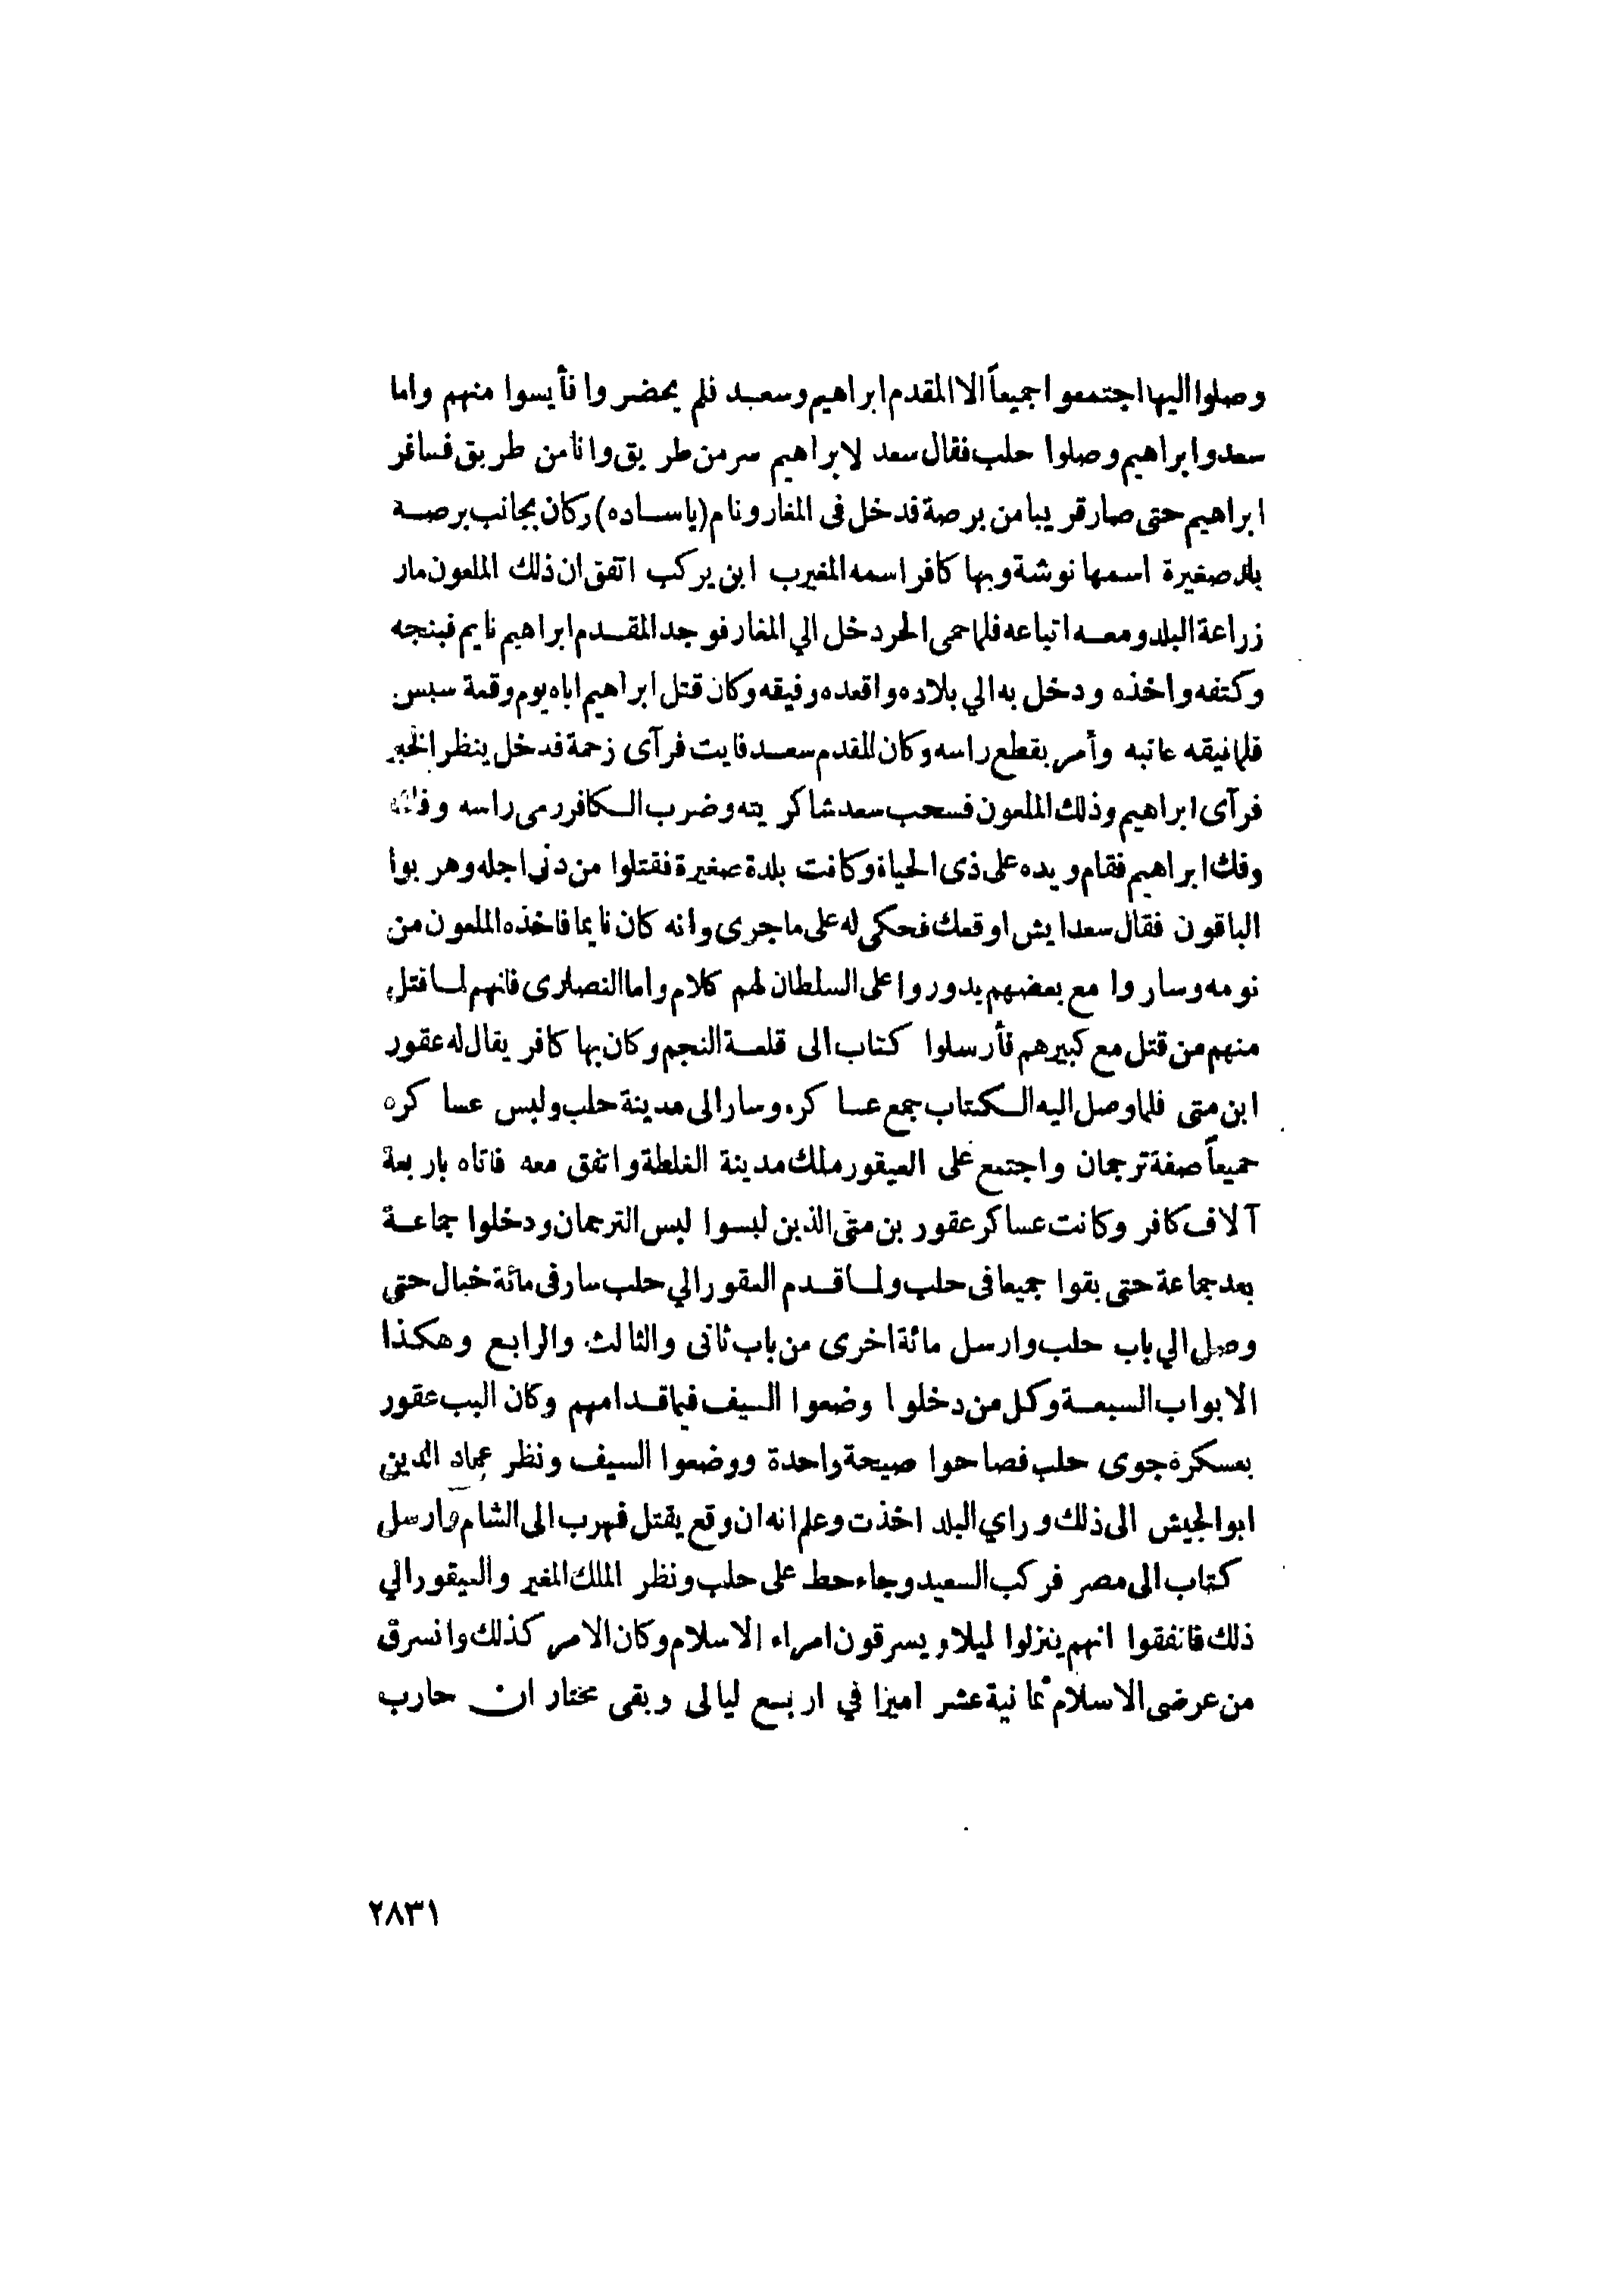 وصلوا اليها اجتمعوا جميعاً الا المقدم ابراهيم وسعيد فلم يحضروا فأيسوا منهم واما
سعد وابراهيم وصلوا حلب فقال سعد لابراهيم سر من طريق وانا من طريق فسافر
ابراهيم حتى صار قريبا من برصة فدخل فى المغار ونام (ياساده) وكان بجانب برصة
بلد صغيرة اسمها نوشة وبها كافر اسمه المغيرب ابن يركب اتفق ان ذلك الملعون مار
زراعة البلد ومعه اتباعه فلما حمى الحر دخل الي المغار فوجد المقدم ابراهيم نايم فبنجه
وكتفه واخذه ودخل به الي بلاده واقعده وفيقه وكان قتل ابراهيم اباه يوم وقعة سيس
فلما فيقه عاتبه وأمر بقطع راسه وكان المقدم سعد فايت فرآى زحمة فدخل ينظر الخبر
فرآى ابراهيم وذلك الملعون فسحب سعد شاكريته وضرب الكافر رمى راسه
وفك ابراهيم فقام ويده على ذى الحياة وكانت بلدة صغيرة فقتلوا من دنى اجله وهربوا
الباقون فقال سعد ايش اوقعك فحكى له على ماجرى وانه كان نايما فاخذه الملعون من
نومه وساروا مع بعضهم يدوروا على السلطان لهم كلام واما النصارى فانهم لما قتل
منهم من قتل مع كبيرهم فأرسلوا كتاب الى قلعة النجم وكان بها كافر يقال له عقور
ابن متى فلما وصل اليه الكتاب جمع عساكره وسار الى مدينة حلب ولبس عساكره
جميعاً صفة ترجمان واجتمع على العيقور ملك مدينة الغلطة واتفق معه فاتاه باربعة
آلاف كافر وكانت عساكر عقور بن متى الذين لبسوا لبس الترجمان ودخلوا جماعة
بعد جماعة حتى بقوا جميعا فى حلب ولما قدم العقور الي حلب سار فى مائة خيال حتى
وصل الي باب حلب وارسل مائة اخرى من باب ثانى والثالث والرابع وهكذا
الابواب السبعة وكل من دخلوا وضعوا السيف فيما قدامهم وكان البب عقور
بعسكره جوى حلب فصاحوا صيحة واحدة ووضعوا السيف ونظر عماد الدين
ابو الجيش الى ذلك وراي البلد اخذت وعلم انه ان وقع يقتل فهرب الى الشام وارسل
كتاب الى مصر فركب السعيد وجاء حط على حلب ونظر الملك المغير والعيقور الي
ذلك فاتفقوا انهم ينزلوا ليلا ويسرقون امراء الاسلام وكان الامر كذلك وانسرق
من عرضى الاسلام ثمانية عشر اميرا في اربع ليالى وبقى محتار ان حارب
٢٨٣١